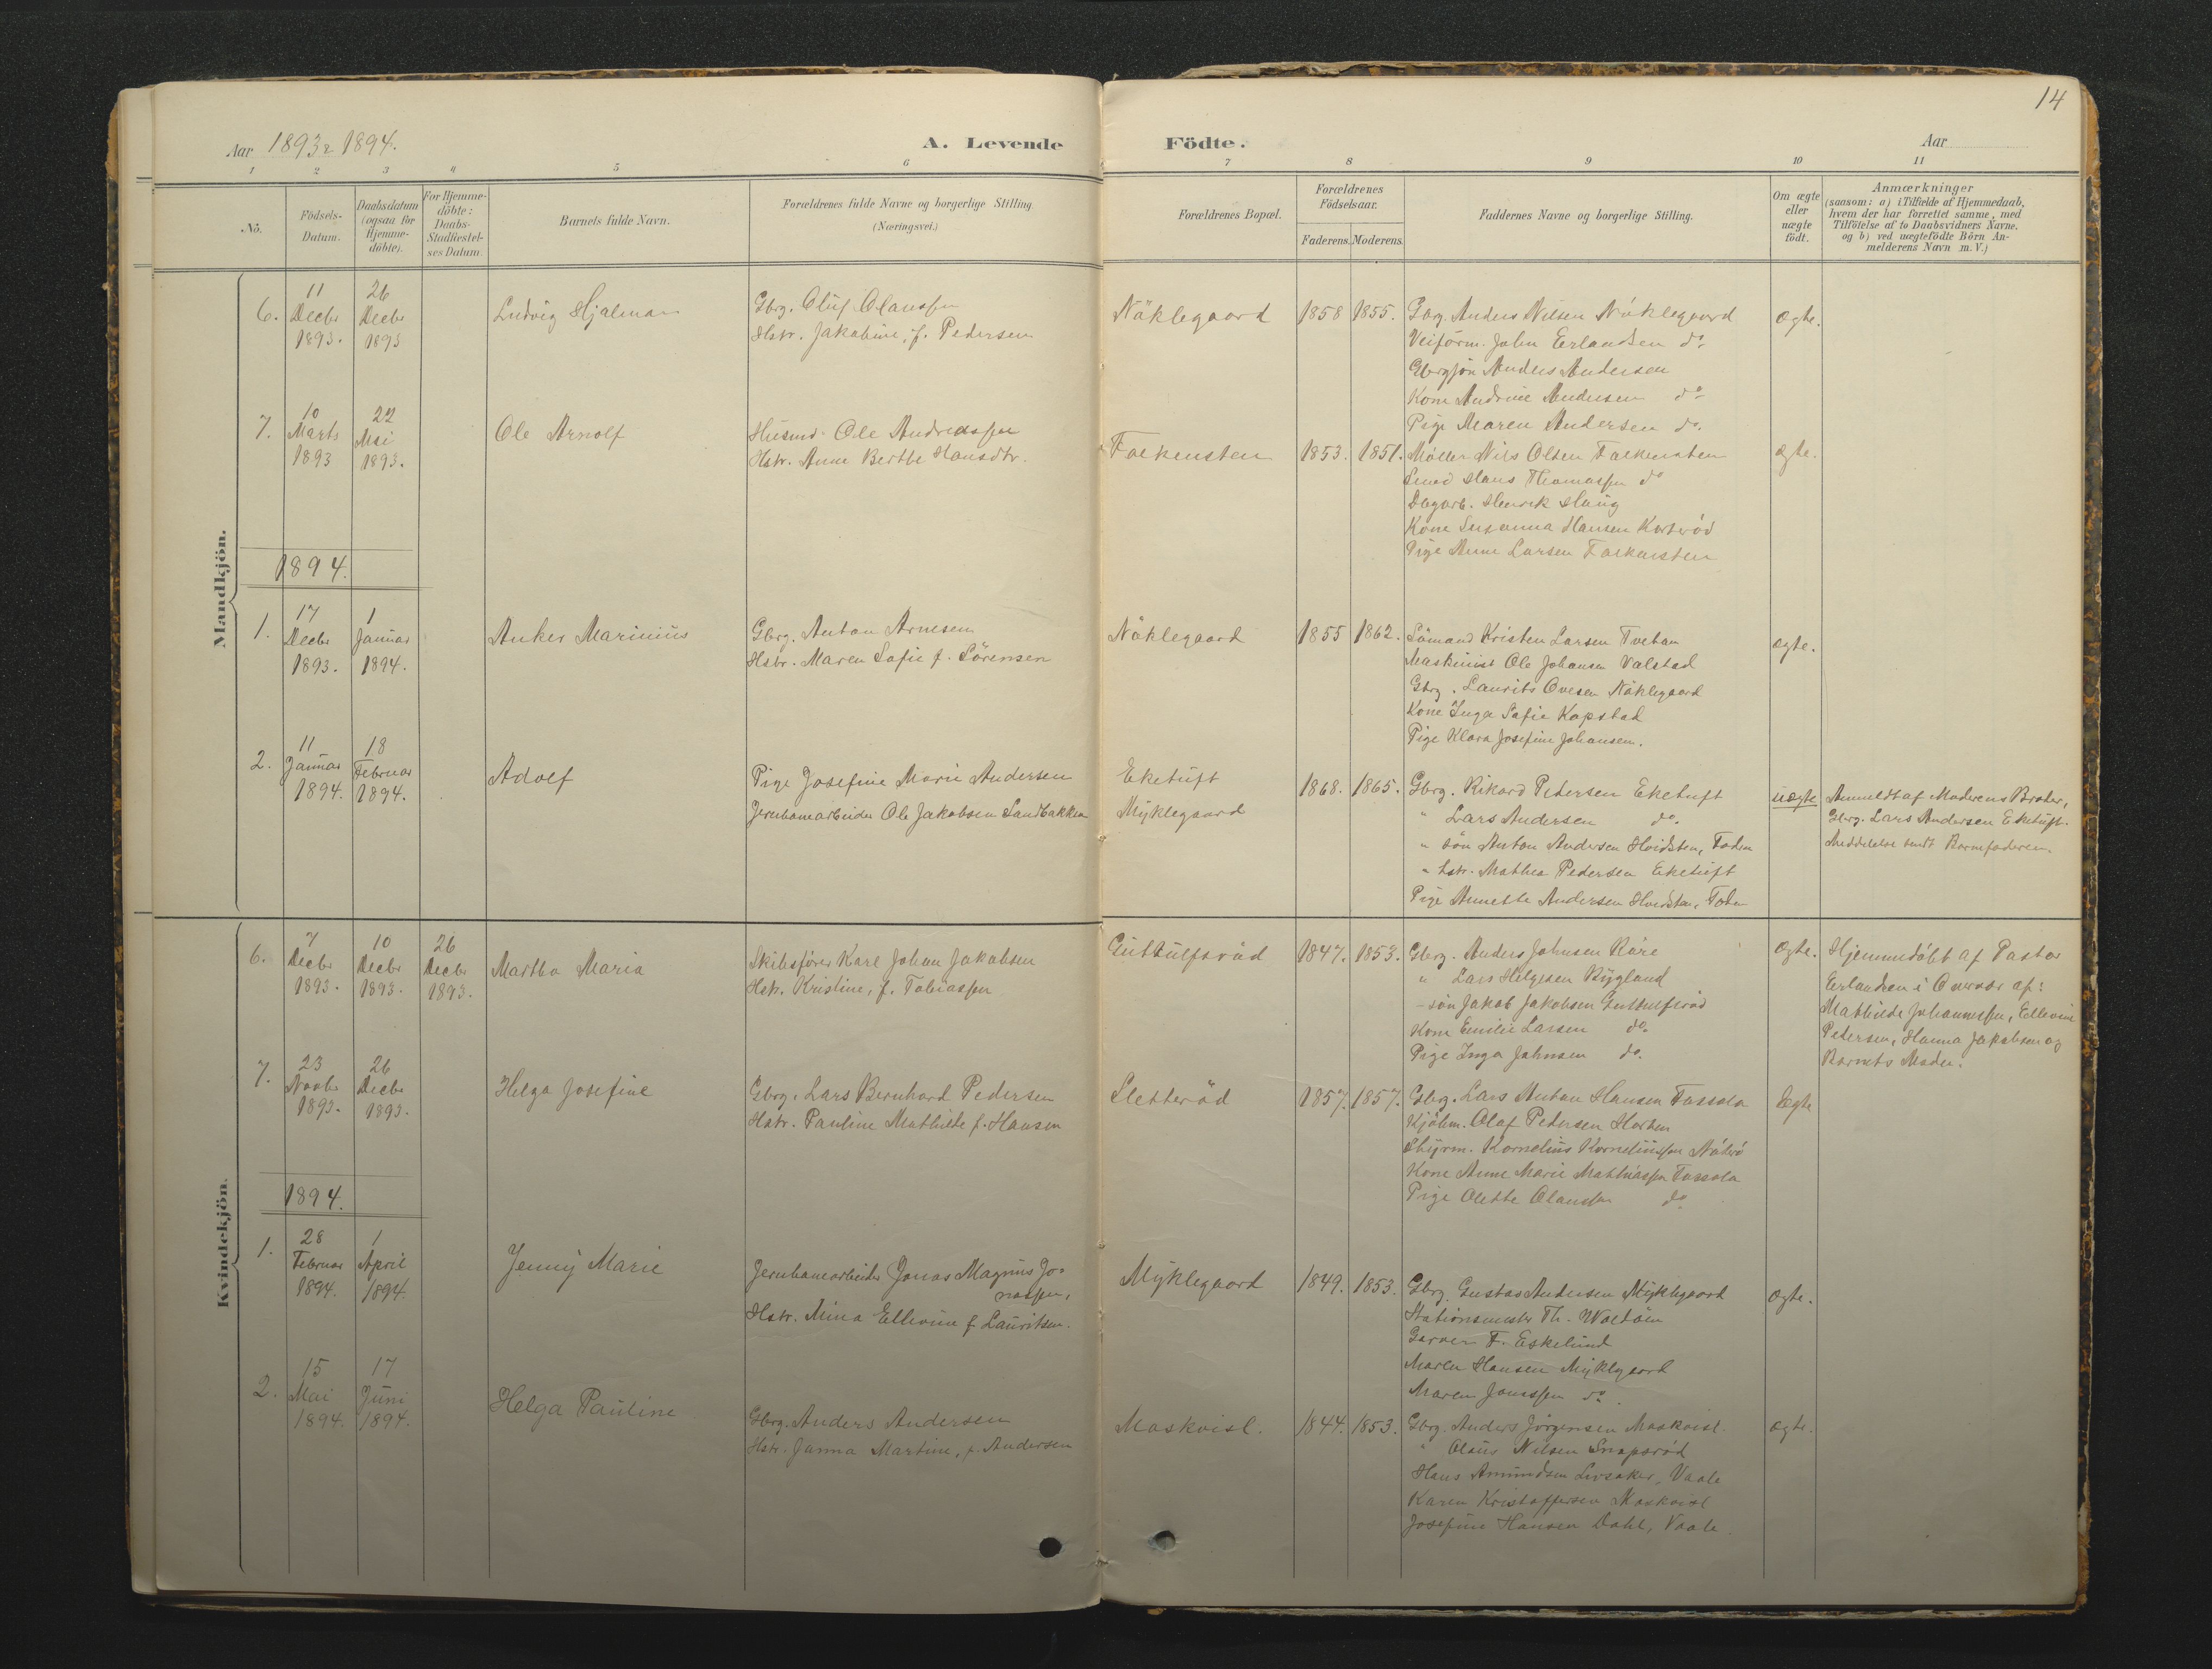 14
Aar 1893 & 1894.
A. Levende Födte.
Aar
1 2 3 4 5 6 7 8 9 10 11
No.
Födsels-Datum.
Daabsdatum (ogsaa for Hjemme-döbte).
For Hjemme-döbte: Daabs-Stadfæstel-ses Datum.
Barnets fulde Navn.
Forældrenes fulde Navne og borgerlige Stilling.
(Næringsvei.)
Forældrenes Bopæl.
Forældrenes Födselsaar.
Faderens. Moderens.
Faddernes Navne og borgerlige Stilling.
Om ægte eller uægte födt.
Anmærkninger
(saasom: a) i Tilfælde af Hjemmedaab,
hvem der har forrettet samme, med
Tilföielse af to Daabsvidners Navne.
og b) ved uægtefödte Börn An-
melderens Navn m. V.)
Mandkjön.
6. 11 Decbr 1893. 26 Decbr 1893
Ludvig Hjalmar
Gbrg. Oluf Olaussen
Hstr. Jakobine, f. Pedersen
Nöklegaard 1858 1855.
Gbrg. Anders Nilsen Nöklegaard
Veiform. John Erlandsen do
Gbrgsön Anders Andersen
Kone Andrine Andersen do
Pige Maren Andersen do.
ægte.
7. 10 Marts 1893 22 Mai 1893.
Ole Arnolf
Husmd. Ole Andreassen
Hstr. Anne Berthe Hansdtr.
Falkensten 1853. 1851.
Møller Nils Olsen Falkensten
Smed Hans Thomassen do
Dagarb. Henrik Haug
Kone Susanna Hansen
Pige Anne Larsen Falkensten
ægte.
1894.
1. 17 Decbr 1893. 1 Januar 1894.
Anker Marinius
Gbrg. Anton Arnesen
Hstr. Maren Sofie f. Sörensen
Nöklegaard 1855 1862.
Sömand Kristen Larsen Tvetan
Maskinist Ole Johansen Valstad
Gbrg. Laurits Ovesen Nöklegaard
Kone Inga Sofie Kopstad
Pige Klara Josefine Johansen.
ægte.
2. 11 Januar 1894. 18 Februar 1894.
Adolf
Pige Josefine Marie Andersen
Jernbanearbeider Ole Jakobsen Sandbakken
Eketuft
Myklegaard
1868. 1865.
Gbrg. Rikard Pedersen Eketuft
" Lars Andersen do.
" sön Anton Andersen Hvidsten,
" hstr. Mathea Pedersen Eketuft
Pige Annette Andersen Hvidsten,
uægte
Anmeldt af Moderens Broder,
Gbrg. Lars Andersen Eketuft.
Meddelelse sendt Barnefaderen.
Kvindekjön.
6. 7 Decbr 1893. 10 Decbr 1893. 26 Decbr 1893.
Martha Maria
Skibsförer Karl Johan Jakobsen
Hstr. Kristine, f. Tobiassen
Guttulfsröd 1847. 1853.
Gbrg. Anders Johnsen Röre
" Lars Helgesen Rygland
- sön Jakob Jakobsen Guttulfsröd
Kone Emilie Larsen do.
Pige Inga Johnsen do.
ægte.
Hjemmedöbt af Pastor
Erlandsen i Overvær af:
Mathilde Johannessen, Ellevine
Pedersen, Hanna Jakobsen og
Barnets Moder.
7. 23 Novbr 1893. 26 Decbr 1893.
Helga Josefine
Gbrg. Lars Bernhard Pedersen
Hstr. Pauline Mathilde f. Hansen
Sletteröd 1857. 1857.
Gbrg. Lars Anton Hansen Fossola
Kjöbm. Olaf Pedersen Horten
Styrm. Kornelius Korneliussen Nöterö
Kone Anne Marie Mathiassen Fossola
Pige Olette Olaussen do.
Ægte
1894.
1. 28 Februar 1894. 1 April 1894.
Jenny Marie
Jernbanearbeider Jonas Magnus Jo-
nassen,
Hstr. Mina Ellevine f. Lauritsen.
Myklegaard 1849. 1853.
Gbrg. Gustav Andersen Myklegaard
Stationsmester Th.
Garver F. Eskelund
Maren Hansen Myklegaard
Maren Jonassen do.
ægte.
2. 15 Mai 1894. 17 Juni 1894.
Helga Pauline
Gbrg. Anders Andersen
Hstr. Janna Martine, f. Andersen
Maskvisl. 1844. 1853.
Gbrg. Anders Jörgensen Maskvisl.
" Olaus Nilsen Snapsröd
Hans Amundsen Livsaker, Vaale
Karen Kristoffersen Maskvisl
Josefine Hansen Dahl, Vaale.
ægte.